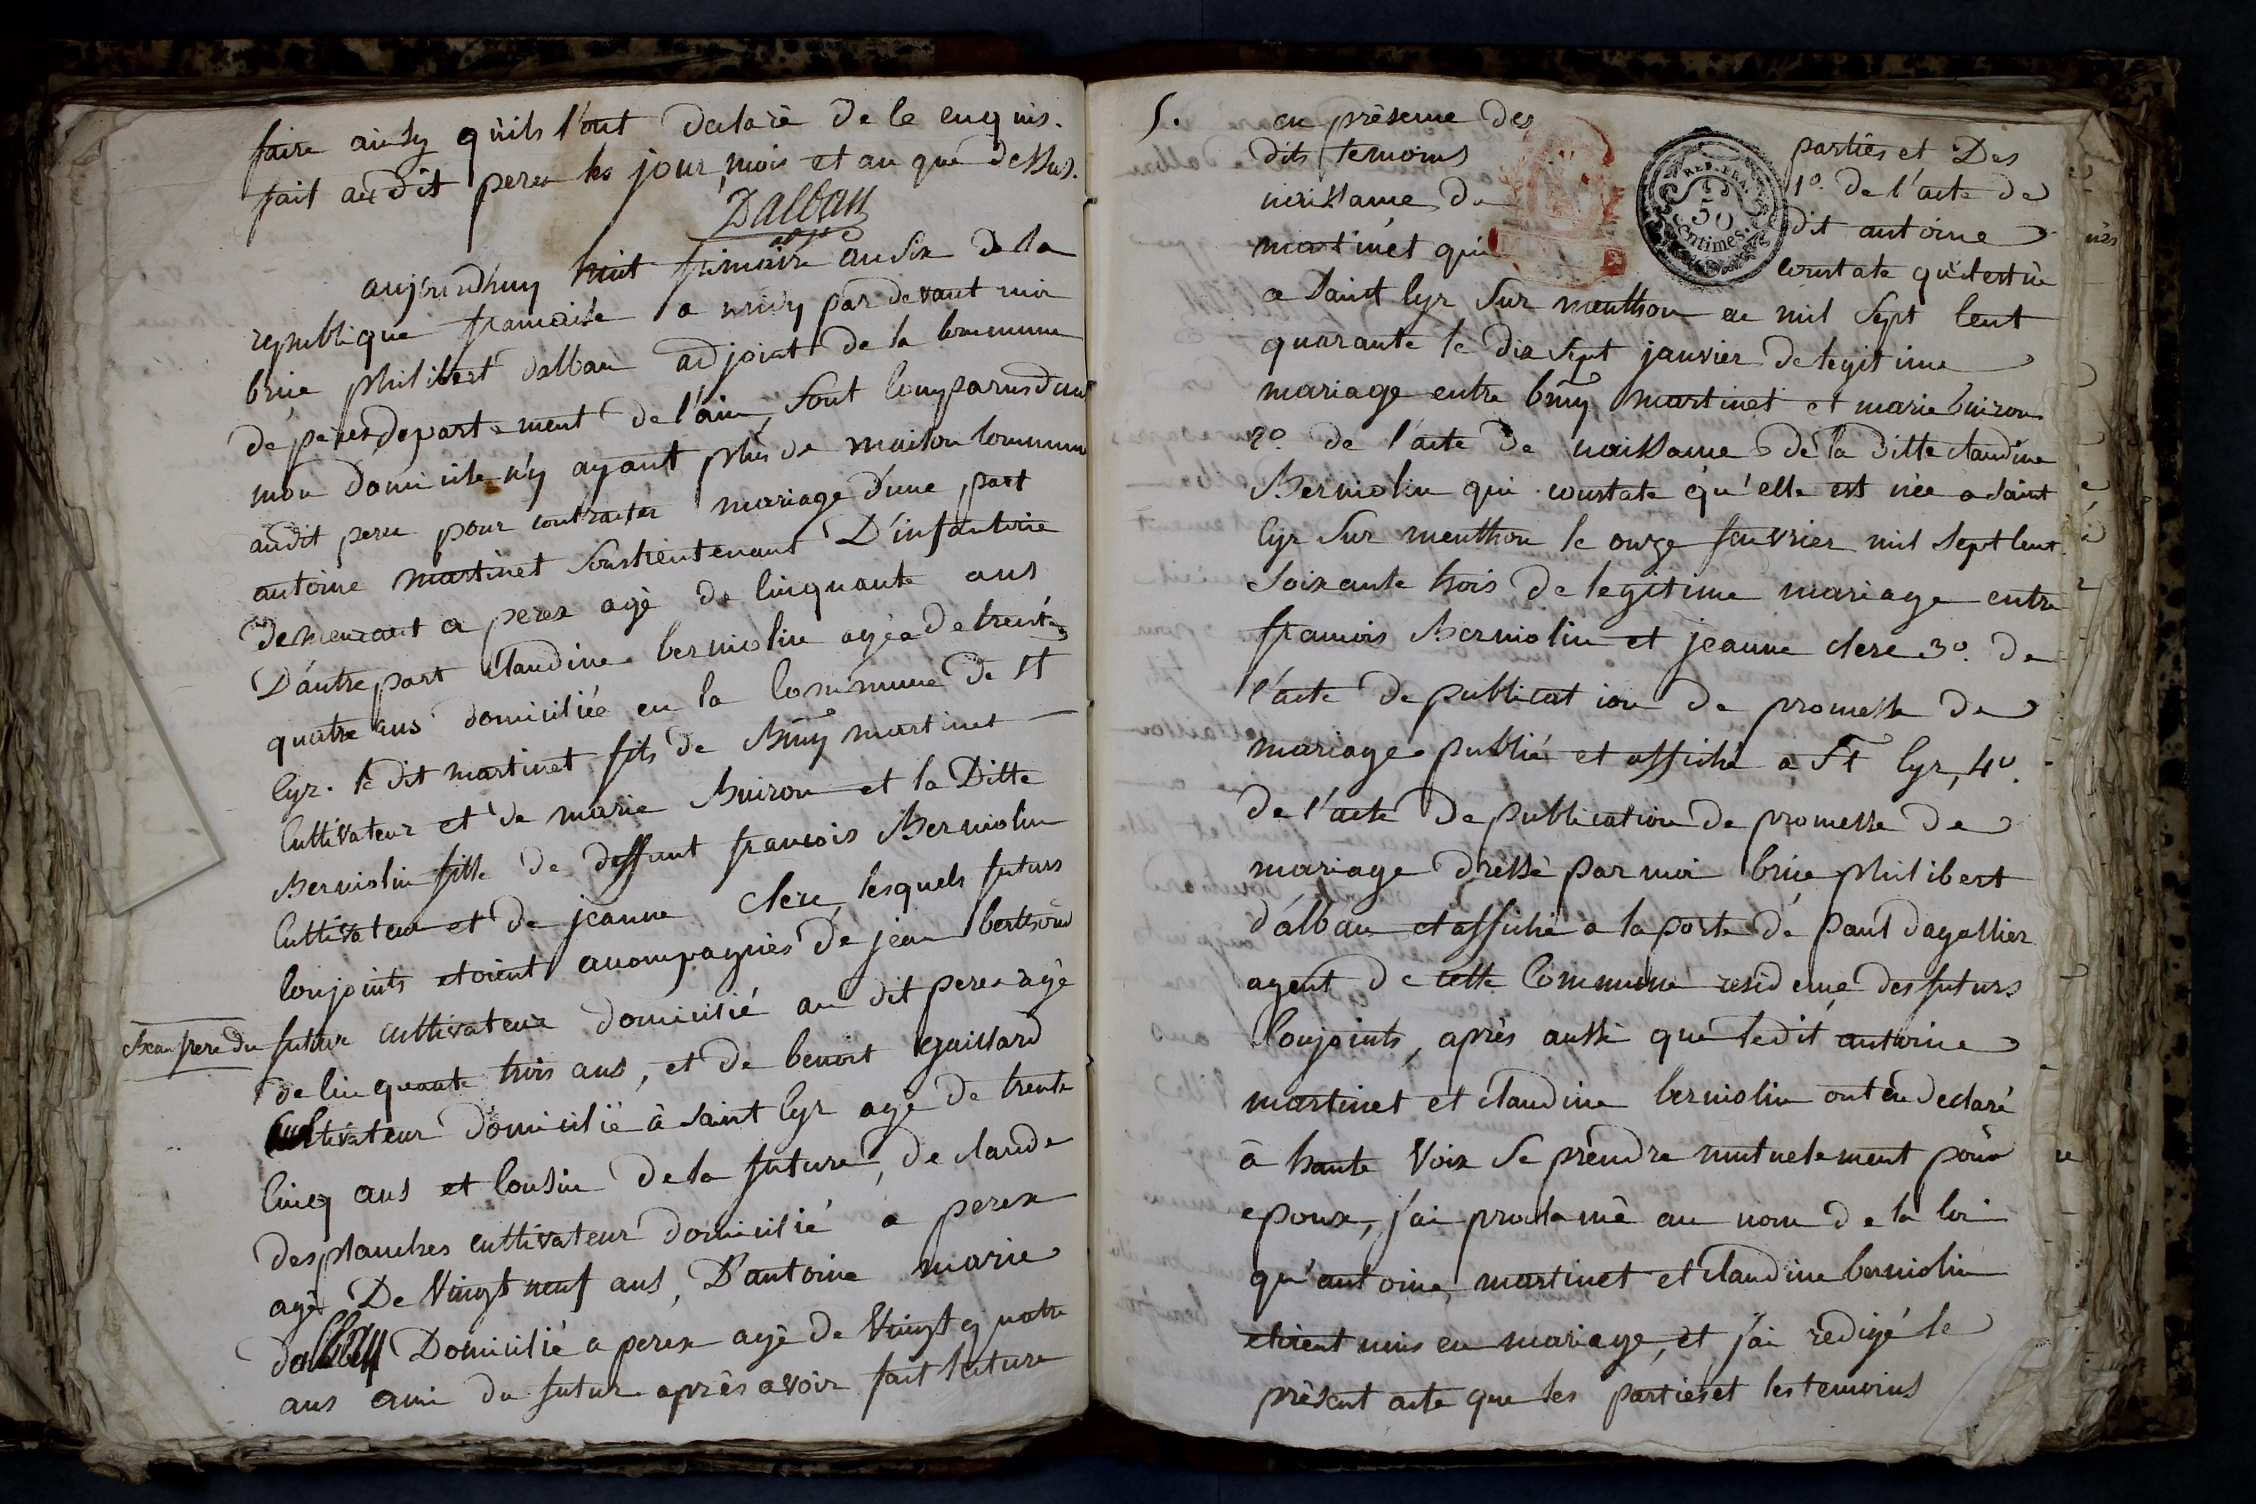 faire ainsy quils l'ont declaré de le enquis.
fait au dit perex les jour, mois et an que dessus.
Dalban
adjoint
aujourdhuy huit frimaire an six de la
republique francaise a midy par devant moi
brice philibert dalban adjoint de la commune
de perex departement de l'ain, sont comparus dans
mon domicile n'y ayant plus de maison commune
audit perex pour contracter mariage d'une part
antoine martinet souslieutenant D'infanterie
demeurant a perex agé de cinquante ans
D'autre part claudine berniolin agéé de trente
quatre ans domiciliée en la commune de St
Cyr. le dit martinet fils de Bmy martinet
Cultivateur et de marie Buiron et la Ditte
Berniolin fille de deffunt francois Berniolin
Cultivateur et de jeanne clere, lesquels futurs
conjoints etoient acompagnies de jean berthoud
Beau frere du
futur cultivateur domicilié au dit perex agé
de cinquante trois ans, et de benoit gaillard
cultivateur domicilié à saint Cyr agé de trente
Cinq ans et cousin de la future, de claude
desplanches cultivateur domicilié a perex
agé De Vingt neuf ans, D'antoine marie
Domicilié a perex agé de Vingt quatre
ans ami du futur après avoir fait lecture
5.
en présence des parties et Des
dits temoins 1º. de l'acte de
naissance du dit antoine
martinet qui constate qu'il est né
a Saint Cyr Sur menthon en mil Sept Cent
quarante le dix sept janvier de legitime
mariage entre Bmy Martinet et marie buiron
2º. de l'acte de naissance de la ditte claudine
Berniolin qui constate qu'elle est née a Saint
Cyr Sur menthon le onze fevrier mil Sept Cent
Soixante trois de legitime mariage entre
francois Berniolin et jeanne clere 3º. de
l'acte de publication de promesse de
mariage publié et affiché a St Cyr, 4º.
de l'acte de publication de promesse de
mariage dressé par moi brice philibert
d'alban et affiché a la porte de paul dagallier
agent de cette Commune residence des futurs
Conjoints, après aussi que ledit antoine
martinet et claudine berniolin ont eu declaré
a haute Voix Se prendre mutuelement pour
epoux, j'ai proclamé au nom de la loi
qu'antoine martinet et claudine berniolin
etoient unis en mariage, et j'ai rédigé le
présent acte que les parties et les temoins
REP. FRA.
50
Centimes.